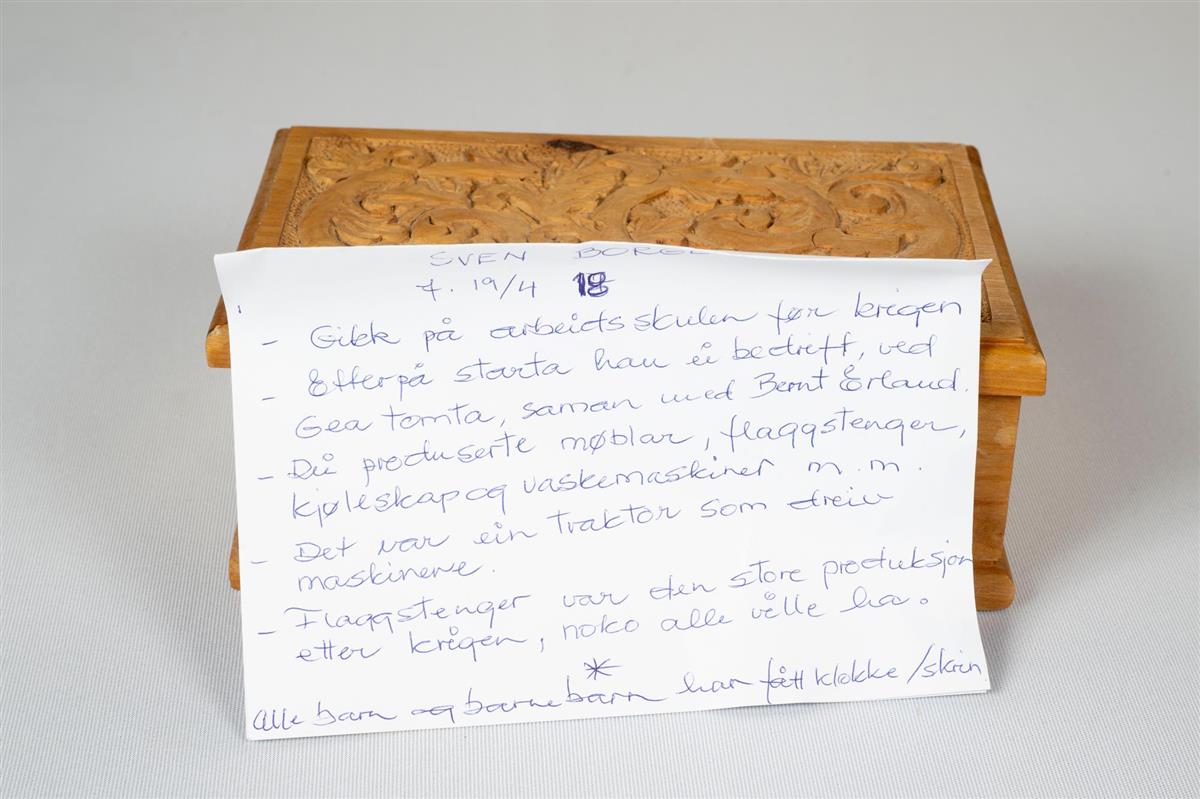 SVEN
f. 19/4 18
- Gikk på arbeidsskulen før krigen
- Etterpå starta han ei bedrift, ved
Gea tomta, saman med Bernt Erland.
- Dei produserte møblar, flaggstenger,
kjøleskap og vaskemaskiner m.m.
- Det var ein traktor som dreiv
maskinene.
- Flaggstenger var den store produksjon
etter krigen, noko alle ville ha.
*
Alle barn og barnebarn har fått klokke/skrin